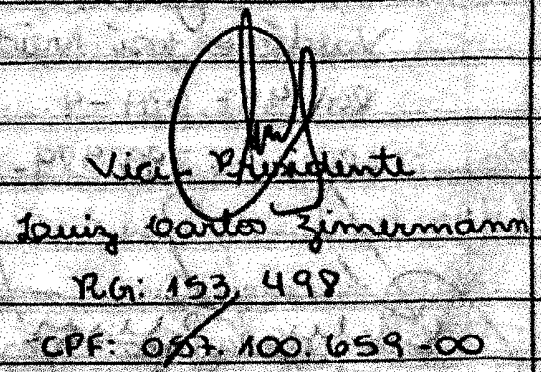 Vice-Presidente
Luiz Carlos Zimermann
RG: 153.498
CPF: 057.100.659-00